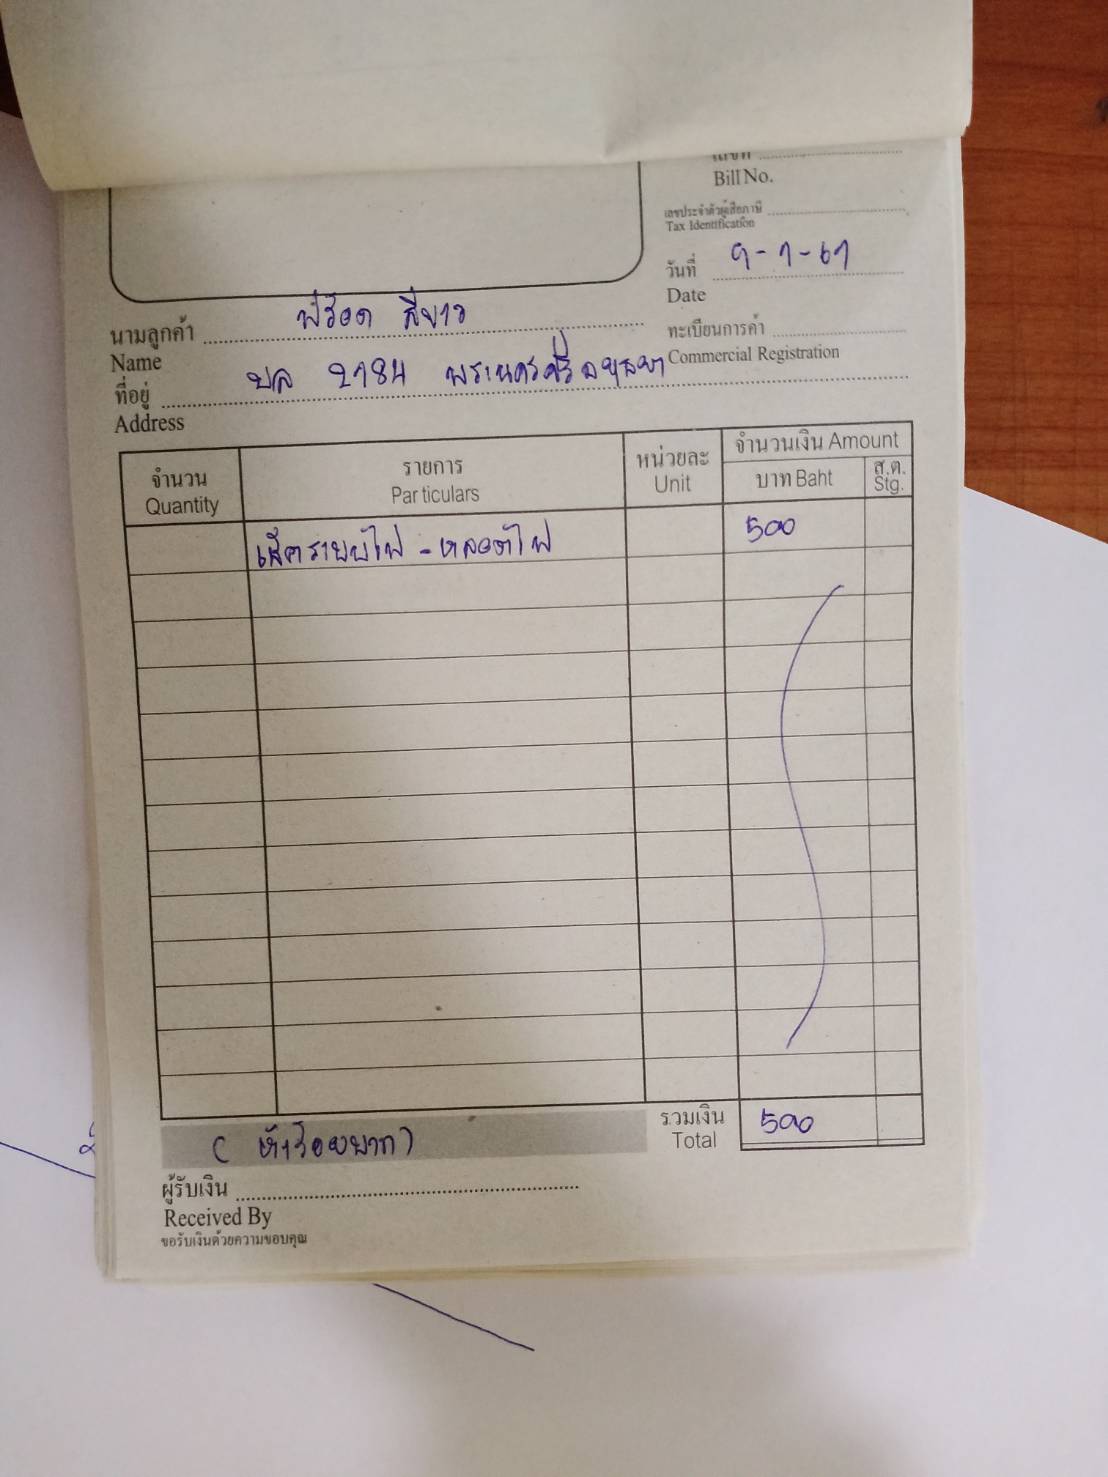 เลขที่
Bill No.
เลขประจำตัวผู้เสียภาษี
Tax Identification
วันที่ 9-1-67
Date
นามลูกค้า พี่ร๊อต สีขาว
Name
ทะเบียนการค้า
Commercial Registration
ที่อยู่ บล 2784 พระนครศรีอยุธยา
Address
จำนวน รายการ หน่วยละ จำนวนเงิน Amount
Quantity Particulars Unit บาท Baht ส.ต. Stg.
เช็คระบบไฟ - หลอดไฟ 500
รวมเงิน 500
Total
(ห้าร้อยบาท)
ผู้รับเงิน
Received By
ขอรับเงินด้วยความขอบคุณ